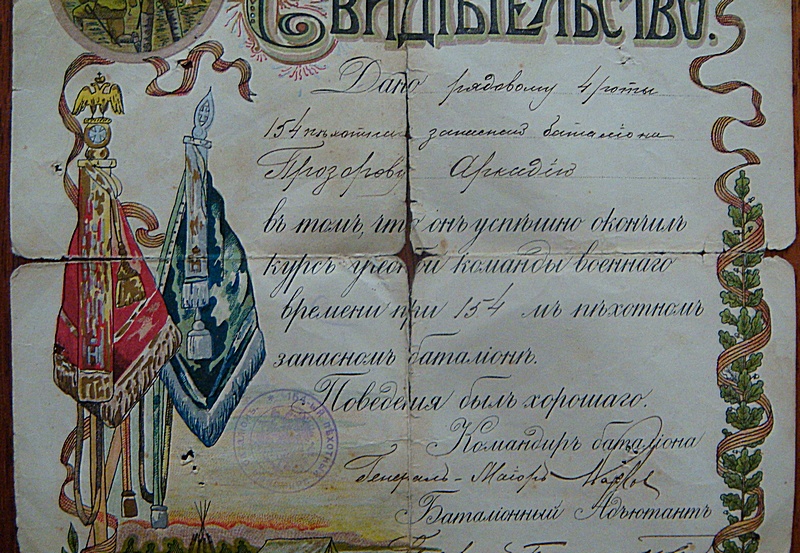 Свидѣтельство.
Дано рядовому 4 роты
154 пѣхотнаго запаснаго баталіона
Прозорову Аркадію
въ томъ, что онъ успѣшно окончилъ
курсъ учебной команды военнаго
времени при 154 мъ пѣхотномъ
запасномъ баталіонѣ.
Поведенія былъ хорошаго.
Командиръ баталіона
Генералъ-Маіоръ
Баталіонный Адъютантъ
154-й пѣхотный